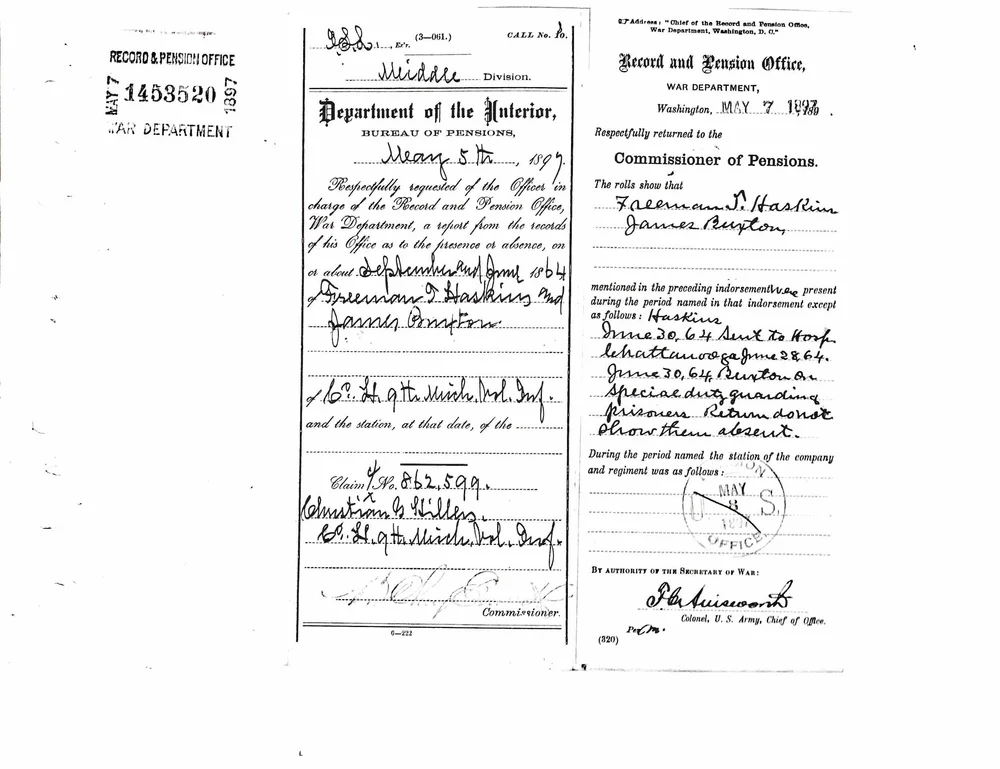 RECORD & PENSION OFFICE
MAY 7
1453520
1897
WAR DEPARTMENT
(3—061.)
CALL No.
Ex'r.
Middle Division.
Department of the Interior,
BUREAU OF PENSIONS,
May 5th, 1897.
Respectfully requested of the Officer in
charge of the Record and Pension Office,
War Department, a report from the records
of his Office as to the presence or absence, on
or about September and June 1864
of Freeman T Haskins and
James Buxton.
of Co. H, 9th Mich. Vol. Inf.
and the station, at that date, of the
Claim No. 862,599.
Christian G Hillers,
Co. H, 9th Mich. Vol. Inf.
Commissioner.
6—222
Address: "Chief of the Record and Pension Office,
War Department, Washington, D. C."
Record and Pension Office,
WAR DEPARTMENT,
Washington, MAY 7 1897.
Respectfully returned to the
Commissioner of Pensions.
The rolls show that
Freeman T. Haskins
James Buxton,
mentioned in the preceding indorsement were present
during the period named in that indorsement except
as follows: Haskins
June 30, 64 Sent to Hosp
Chattanooga June 28, 64.
June 30, 64, Buxton on
special duty guarding
prisoners Return do not
show them absent.
During the period named the station of the company
and regiment was as follows:
MAY
8
U. S.
OFFICE
BY AUTHORITY OF THE SECRETARY OF WAR:
F C Ainsworth
Colonel, U. S. Army, Chief of Office.
Per
(320)